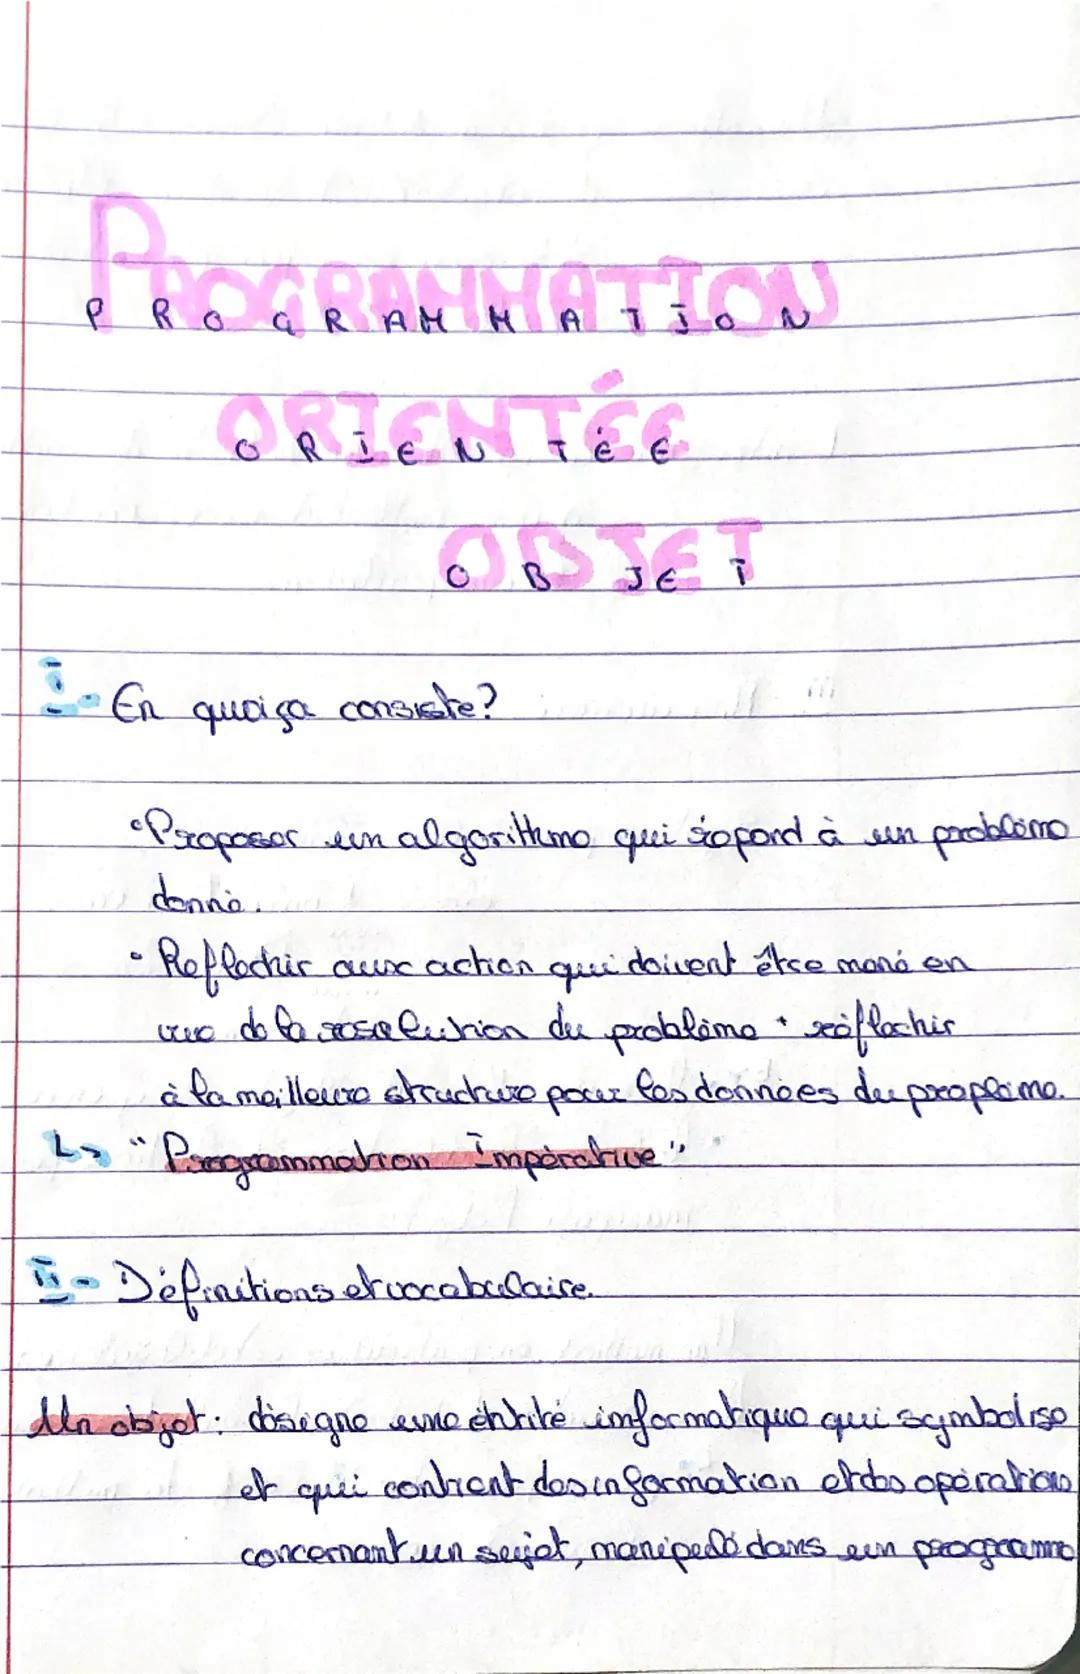 PROGRAMMATION
P R O G R A M M A T I O N
ORIENTÉE
O R I E N T É E
OBJET
O B J E T
I - En quoi ça consiste?
• Proposer un algorithme qui répond à un problème
donné.
• Reflechir aux action qui doivent être mené en
vue de la résolution du problème + réflechir
à la meilleure structure pour les données du proplème.
↳ "Programmation Impérative"
II - Définitions et vocabulaire.
Un objet : désigne une entité informatique qui symbolise
et qui contient des information et des opérations
concernant un sujet, manipulé dans un programme